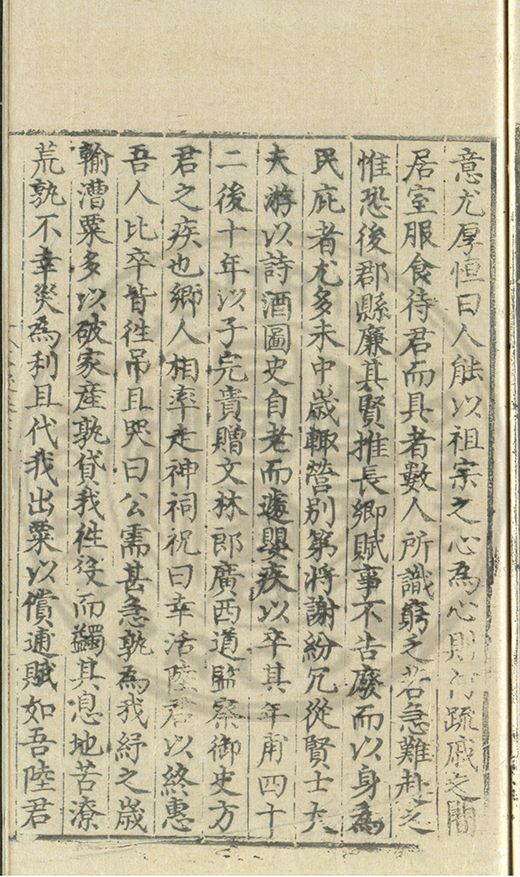 意尤厚恒曰人能以祖宗之心為心則何疏戚之間
居室服食待君而具者數人所識窮乏若急難赴之
惟恐後郡縣廉其賢推長鄉賦事不告廢而以身為
民庇者尤多未中歲輙營別第將謝紛冗從賢士大
夫游以詩酒圖史自老而遽嬰疾以卒其年甫四十
二後十年以子完貴贈文林郎廣西道監察御史方
君之疾也鄉人相率走神祠祝曰幸活陸君以終惠
吾人比卒皆徃吊且哭曰公需甚急孰為我紓之歲
輸漕粟多以破家産孰貸我徃役而蠲其息地苦潦
荒孰不幸災為利且代我出粟以償逋賦如吾陸君